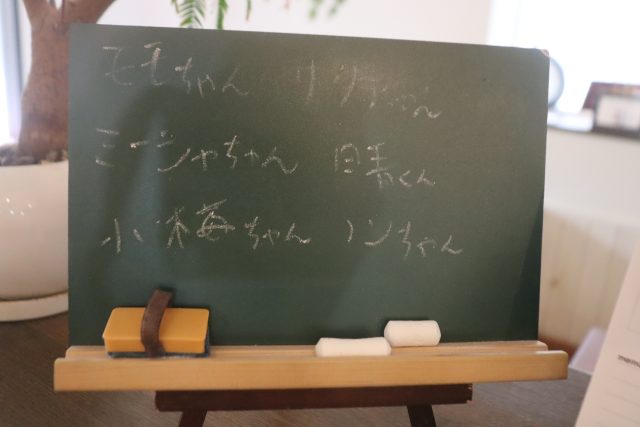 モモちゃん リンちゃん
ミーシャちゃん くん
小梅ちゃん ノンちゃん